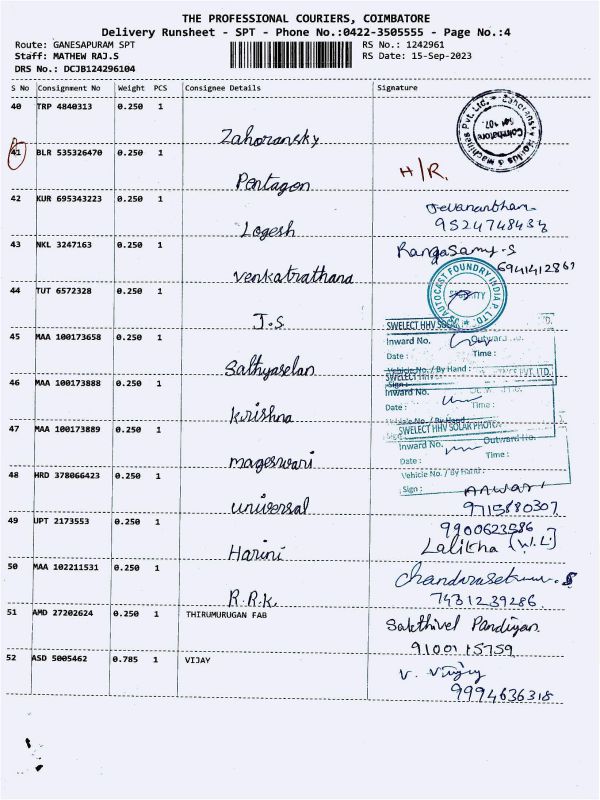 THE PROFESSIONAL COURIERS, COIMBATORE
Delivery Runsheet - SPT - Phone No.:0422-3505555 - Page No.:4
Route: GANESAPURAM SPT RS No.: 1242961
Staff: MATHEW RAJ.S RS Date: 15-Sep-2023
DRS No.: DCJB124296104
S No Consignment No Weight PCS Consignee Details Signature
40 TRP 4840313 0.250 1
Zahoransky
Zahoransky Moulds & Machines Pvt. Ltd. Coimbatore
41 BLR 535326470 0.250 1
H/R.
Pentagon
42 KUR 695343223 0.250 1
9524748434
Logesh
43 NKL 3247163 0.250 1 Rangasamy.S
Venkatrathana
AUTOCAST FOUNDRY INDIA P. LTD. SECURITY
44 TUT 6572328 0.250 1
J.S
SWELECT HHV SOLAR
45 MAA 100173658 0.250 1 Inward No. Outward No.
Date : Time :
Vehicle No. / By Hand :
Sathyaselan
Sign :
46 MAA 100173888 0.250 1 Inward No.
Date : Time :
Krishna
SWELECT HHV SOLAR PHOTO
47 MAA 100173889 0.250 1 Inward No. Outward No.
Date : Time :
mageswari
Vehicle No. / By Hand :
48 HRD 378066423 0.250 1 Sign : Anwar
universal 9715880307
49 UPT 2173553 0.250 1 9900623586
Harini Lalitha (W.L)
50 MAA 102211531 0.250 1
R.R.K. 7431239286.
51 AMD 27202624 0.250 1 THIRUMURUGAN FAB Sakthivel Pandiyan.
9100115759
52 ASD 5005462 0.785 1 VIJAY V. Vijay
9994636318